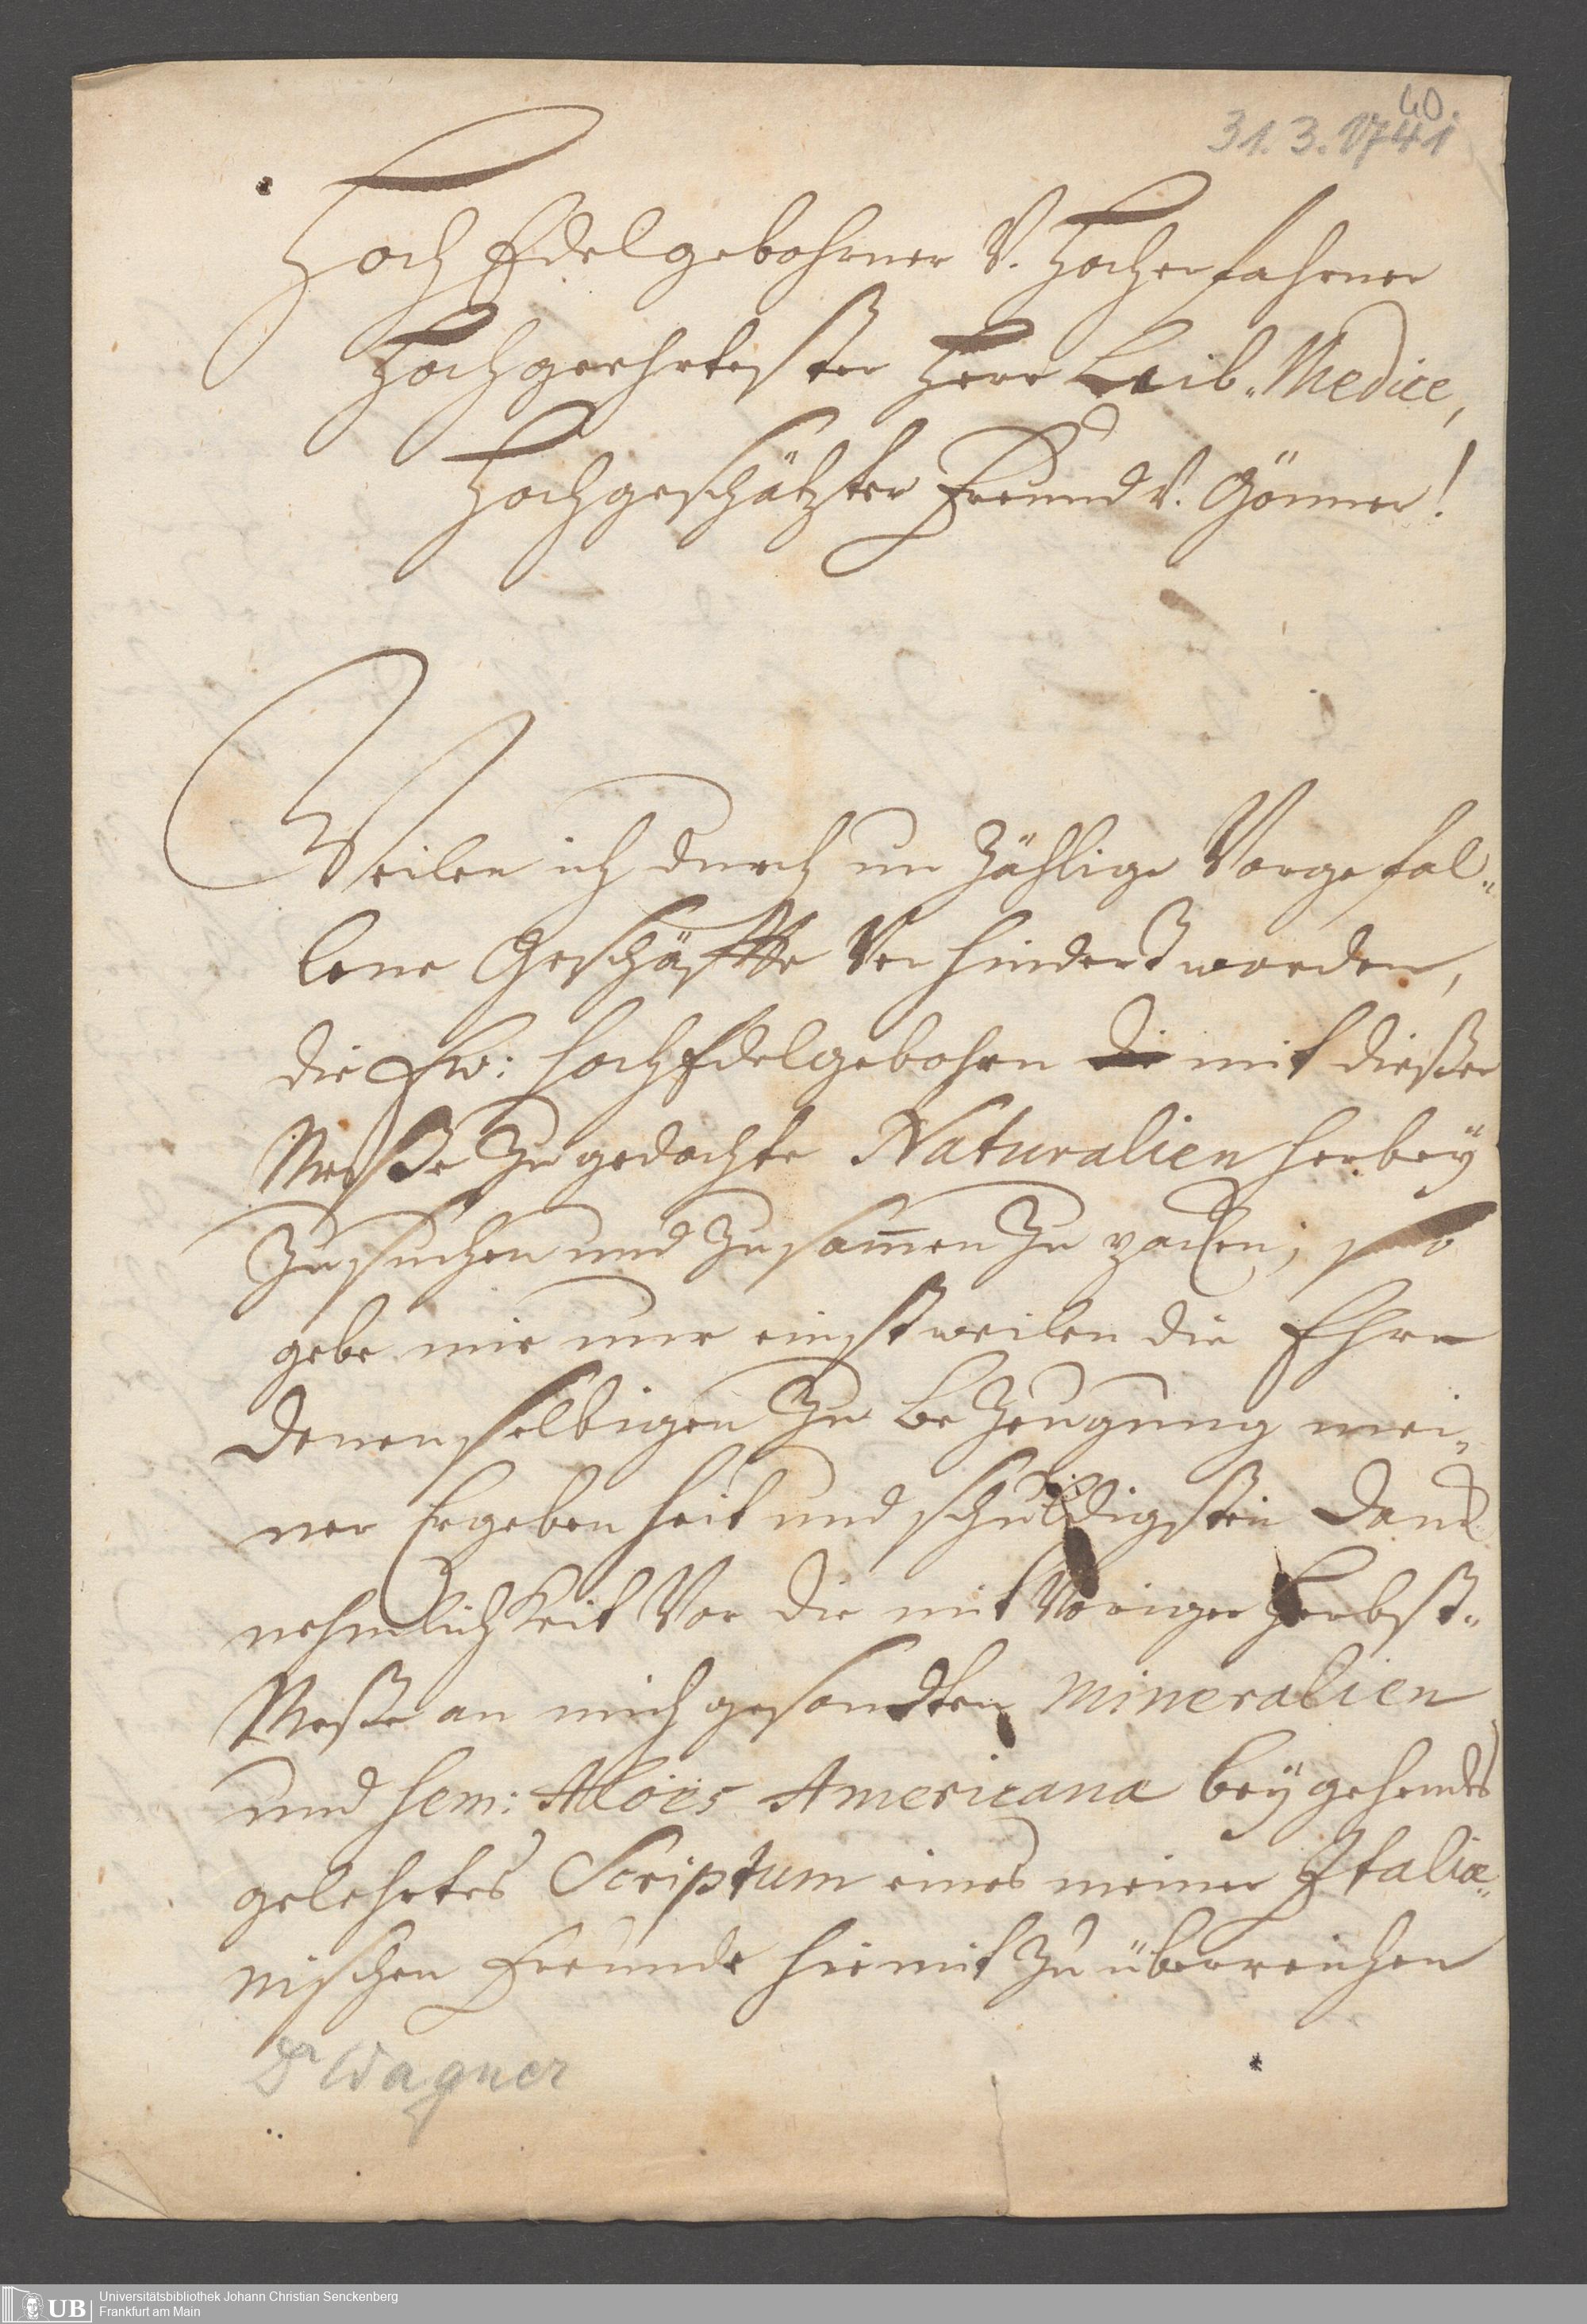 60.
31. 3. 1741
Hoch Edelgebohrner V. Hocherfahrner
Hochgeehrtester Herr Leib-Medice,
Hochgeschätzter Freund V. Gönner!
Weilen ich durch un zählige Vorgefal-
lene Geschäffte Verhindert worden,
die Ew: HochEdelgebohrn die mit dießer
Meße zugedachte Naturalien herbey
zu suchen und zusam̅en zu packen; so
gebe mir nur einstweilen die Ehre
Denenselbigen zu Bezeugung mei-
ner Ergebenheit und schuldigsten Danck
nehmlichkeit Vor die mit Voriger Herbst-
Meße an mich gesandten mineralien
und sem: Aloës Americanæ beygehendes
gelehrtes Scriptum eines meiner Italiæ-
nischen Freunde hiemit zu überreichen
Dr Wagner
UB
Universitätsbibliothek Johann Christian Senckenberg
Frankfurt am Main